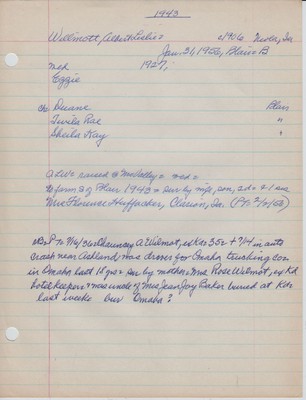 1943
Wilmott, Albert Leslie = c1906 Neola, Ia.
Jan. 31, 1956, Blair = B
md 1927,
Ezzie
ch Duane Blair
Twila Rae "
Sheila Kay "
ALW = raised @ MoValley = md =
to farm S of Blair 1943 = sur by wife, son, 2 d = & 1 sis
Mrs Florence Huffacker, Clarion, Ia. (
9/16/36 Chauncey A Wilmot, ex Kds 35 = + 7/4 in auto
crash near Ashland was driver for Omaha trucking co =
in Omaha last 15 yrs = sur by mother = Mrs Rose Wilmot, ex Kd
hotel keeper & was uncle of Mrs Jean Jay Baker buried at Kds
last week = bur Omaha?